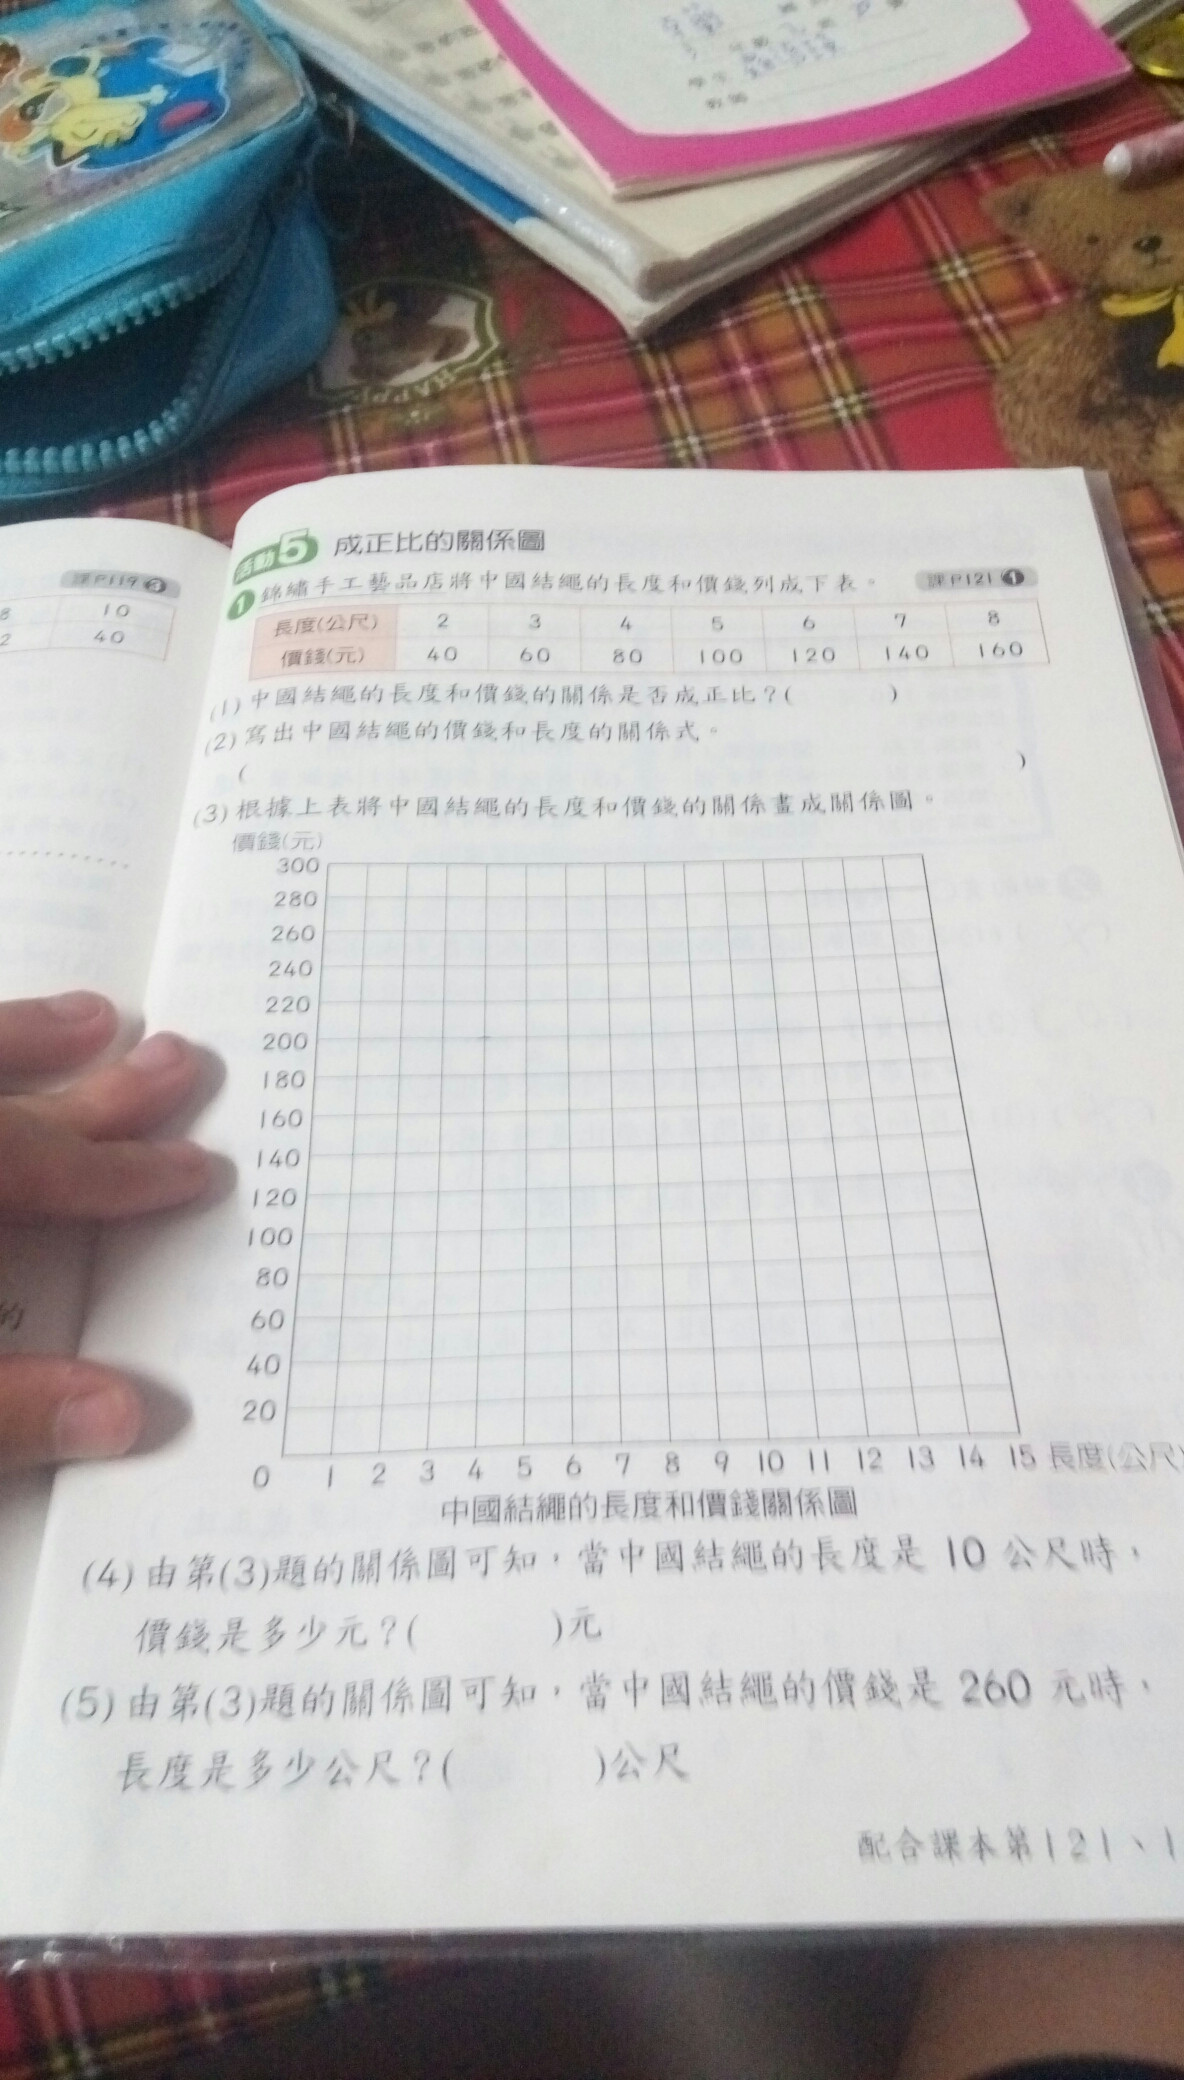 HAPPY
課P119 3
8 10
2 40
的
活動5 成正比的關係圖
1 錦繡手工藝品店將中國結繩的長度和價錢列成下表。 課P121 1
長度(公尺) 2 3 4 5 6 7 8
價錢(元) 40 60 80 100 120 140 160
(1)中國結繩的長度和價錢的關係是否成正比?( )
(2)寫出中國結繩的價錢和長度的關係式。
( )
(3)根據上表將中國結繩的長度和價錢的關係畫成關係圖。
價錢(元)
300
280
260
240
220
200
180
160
140
120
100
80
60
40
20
0 1 2 3 4 5 6 7 8 9 10 11 12 13 14 15 長度(公尺)
中國結繩的長度和價錢關係圖
(4)由第(3)題的關係圖可知,當中國結繩的長度是 10 公尺時,
價錢是多少元?( )元
(5)由第(3)題的關係圖可知,當中國結繩的價錢是 260 元時,
長度是多少公尺?( )公尺
配合課本第121、1